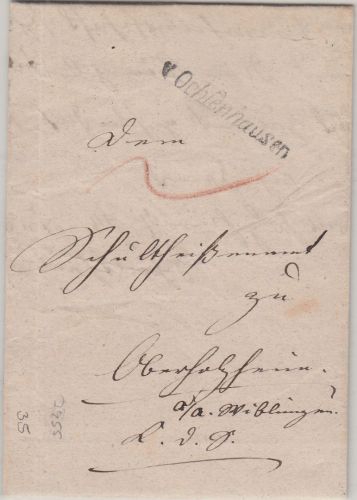 v Ochsenhausen
Dem
Schultheißenamt
zu
Oberholzheim.
O/A. Wiblingen.
K. d. S.
2955
35